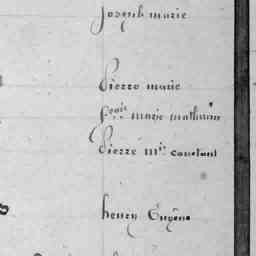 Joseph marie
Pierre marie
marie mathurin
Pierre m.ie constant
henry Eugène